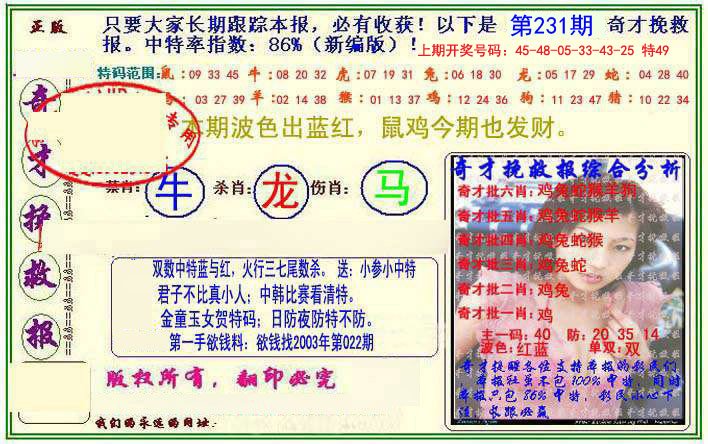 正版
只要大家长期跟踪本报,必有收获!以下是 第231期 奇才挽救
报。中特率指数:86%(新编版)!
上期开奖号码:45-48-05-33-43-25 特49
特码范围:鼠:09 33 45 牛:08 20 32 虎:07 19 31 兔:06 18 30 龙:05 17 29 蛇:04 28 40
03 27 39 羊:02 14 38 猴:01 13 37 鸡:12 24 36 狗:11 23 47 猪:10 22 34
专用
本期波色出蓝红,鼠鸡今期也发财。
奇
才
护
救
报
禁肖:牛 杀肖:龙 伤肖:马
双数中特蓝与红,火行三七尾数杀。 送:小参小中特
君子不比真小人;中韩比赛看清特。
金童玉女贺特码;日防夜防特不防。
第一手欲钱料:欲钱找2003年第022期
版权所有,翻印必究
我们的永远的网址:
奇才挽救报综合分析
奇才批六肖:鸡兔蛇猴羊狗
奇才批五肖:鸡兔蛇猴羊
奇才批四肖:鸡兔蛇猴
奇才批三肖:鸡兔蛇
奇才批二肖:鸡兔
奇才批一肖:鸡
主一码:40 防:20 35 14
波色:红蓝 单双:双
奇才提醒各位支持本报的彩民们
,本报社虽不包100%中特,同时
本报只包86%中特,彩民小心下
注 长跟必赢